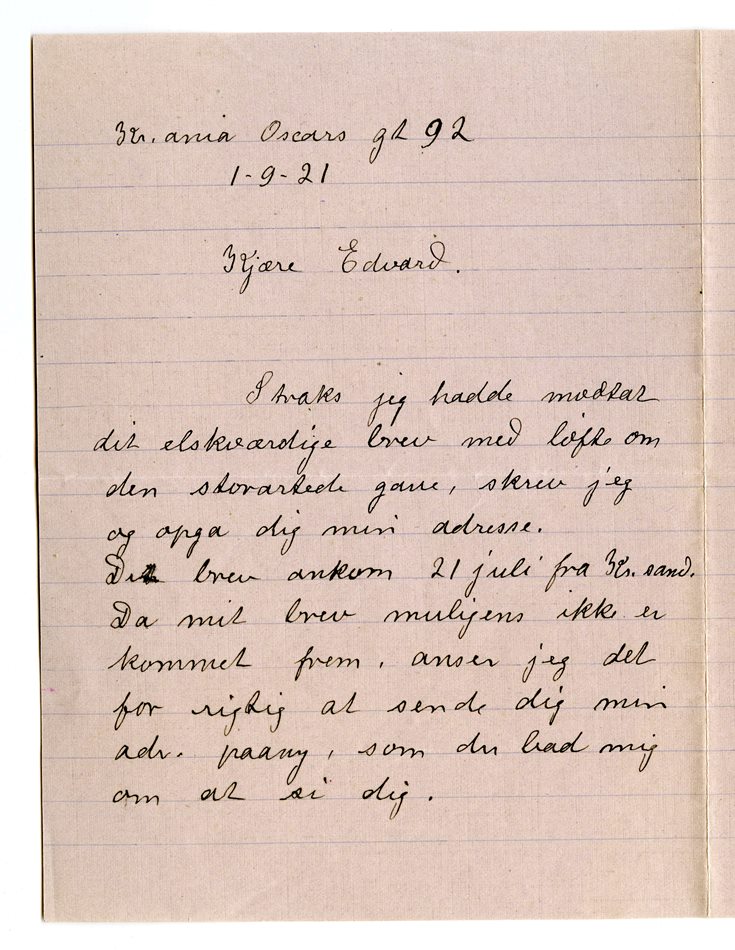 Kr.ania Oscars gt 92
1-9-21
Kjære Edvard.
Straks jeg hadde modtat
dit elskværdige brev med løfte om
den storartede gave, skrev jeg
og opga dig min adresse.
Dit brev ankom 21 juli fra Kr.sand.
Da mit brev muligens ikke er
kommet frem, anser jeg det
for rigtig at sende dig min
adr. paany, som du bad mig
om at si dig.